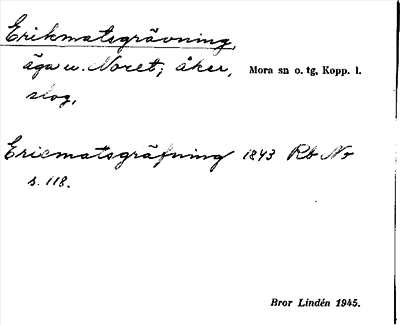 Erikmatsgrävning,
äga u. Noret; åker, Mora sn o. tg, Kopp. l.
slog,
Ericmatsgräfning 1843 Rb Nr
s. 118.
Bror Lindén 1945.